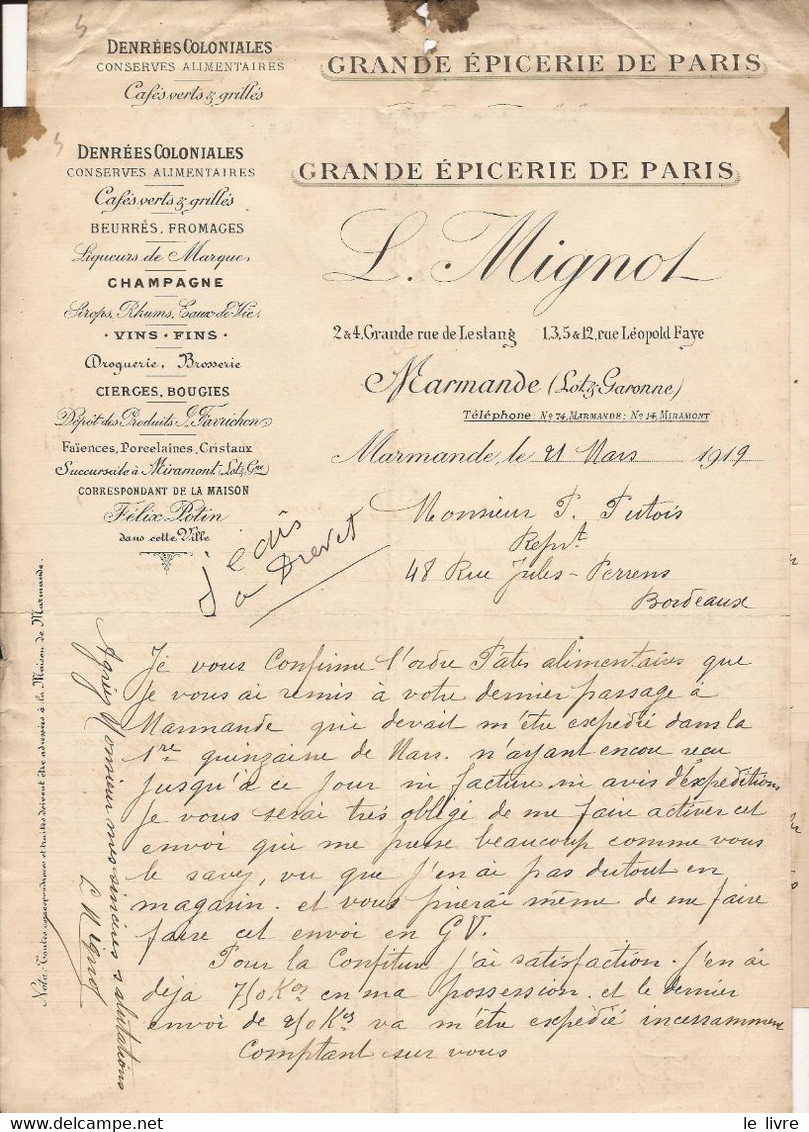 DENRÉES COLONIALES
CONSERVES ALIMENTAIRES
Cafés verts & grillés
GRANDE ÉPICERIE DE PARIS
DENRÉES COLONIALES
CONSERVES ALIMENTAIRES
Cafés verts & grillés
BEURRES, FROMAGES
Liqueurs de Marque
CHAMPAGNE
Sirops, Rhums, Eaux-de-Vie
· VINS · FINS ·
Droguerie, Brosserie
CIERGES, BOUGIES
Dépôt des Produits J. Favrichon
Faïences, Porcelaines, Cristaux
Succursale à Miramont (Lot & Gne)
CORRESPONDANT DE LA MAISON
Félix Potin
dans cette Ville
GRANDE ÉPICERIE DE PARIS
L. Mignot
2 & 4, Grande rue de Lestang 1,3,5 & 12, rue Léopold Faye
Marmande (Lot & Garonne)
Téléphone: No 74, MARMANDE: No 14, MIRAMONT
Marmande, le 21 Mars 1919
Monsieur P. Putois
Reprt
48 Rue Jules-Perrens
Bordeaux
j'écris
a Drevet
Je vous confirme l'ordre Pates alimentaires que
je vous ai remis à votre dernier passage à
Marmande qui devait m'être expédié dans la
1re quinzaine de Mars. n'ayant encore reçu
jusqu'à ce jour ni facture ni avis d'expédition
je vous serai très obligé de me faire activer cet
envoi qui me presse beaucoup comme vous
le savez, vu que j'en ai pas du tout en
magasin. et vous prierai même de me faire
faire cet envoi en GV.
Pour la Confiture j'ai satisfaction. j'en ai
déja 750 Kos en ma possession. et le dernier
envoi de 250 Kos va m'être expédié incessamment
Comptant sur vous
Agréez Monsieur mes sincères salutations
L Mignot
Nota: Toutes correspondances et traites doivent être adressées à la Maison de Marmande.
le livre